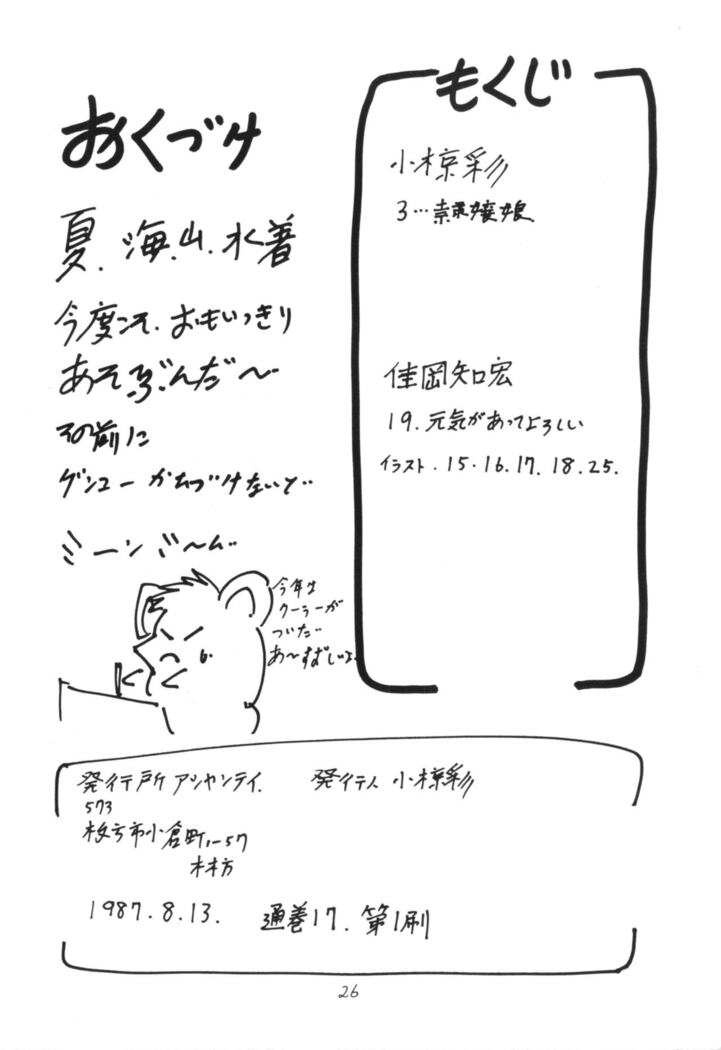 もくじ
小椋彩
3…素嬢娘
佳岡知宏
19. 元気があってよろしい
イラスト.15.16.17.18.25.
おくづけ
夏.海.山.水着
今度こそ.おもいっきり
あそぶんだ〜
その前に
ゲンコー かたづけないと…
ミーンミ〜ん…
今年は
クーラーが
ついた
あ〜すずしいよ.
発行所 アシャンティ. 発行人 小椋彩
573
枚方市小倉町11-57
林方
1987.8.13. 通巻17.第1刷
26